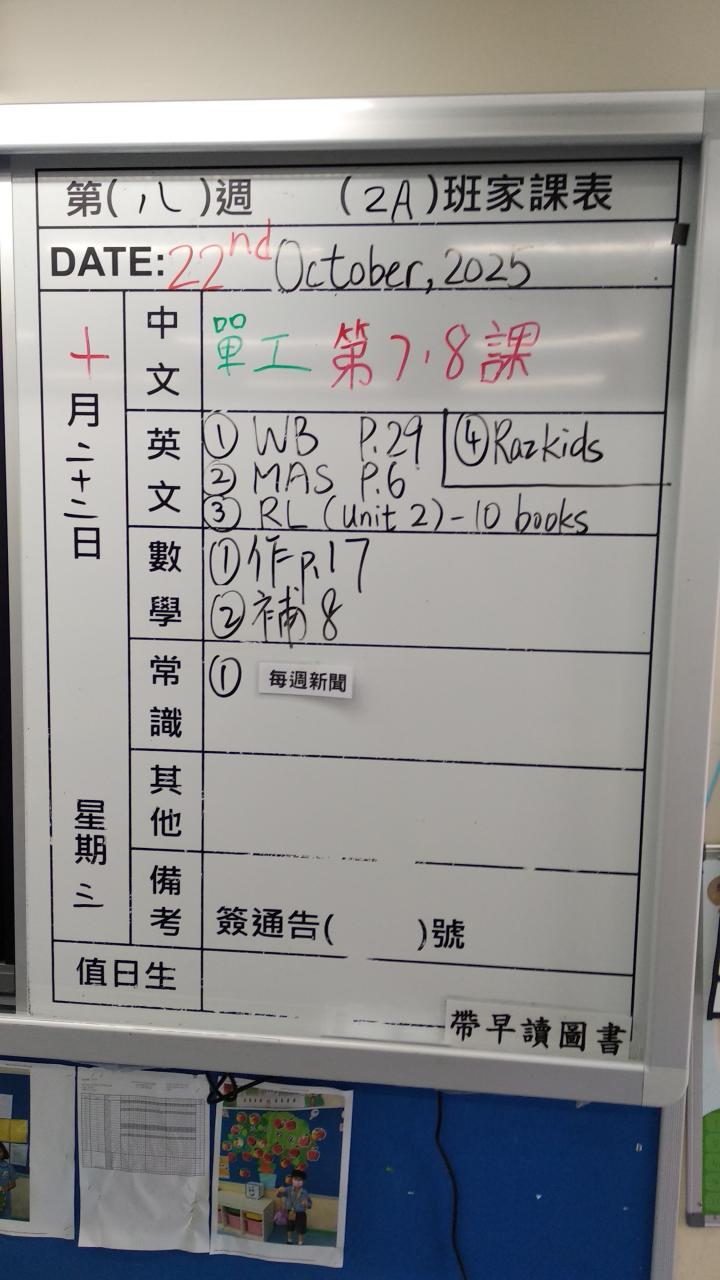 第(八)週 (2A)班家課表
DATE: 22nd October, 2025
十月二十二日 星期三
中文 單工 第7,8課
英文 ① WB P.29 ④ Razkids
② MAS P.6
③ RL (Unit 2) - 10 books
數學 ① 作p.17
② 補8
常識 ① 每週新聞
其他
備考 簽通告( )號
值日生
帶早讀圖書